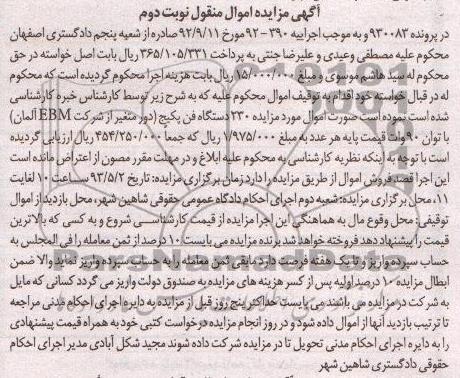 آگهی مزایده اموال منقول نوبت دوم
در پرونده ۹۳۰۰۸۳ و به موجب اجراییه ۳۹۰-۹۲ مورخ ۹۲/۹/۱۱ صادره از شعبه پنجم دادگستری اصفهان
محکوم علیه مصطفی وعیدی و علیرضا جنتی به پرداخت ۳۶۵/۱۰۵/۳۳۱ ریال بابت اصل خواسته در حق
محکوم له سید هاشم موسوی و مبلغ ۱۵/۰۰۰/۰۰۰ ریال بابت هزینه اجرا محکوم گردیده است که محکوم
له در قبال خواسته خود اقدام به توقیف اموال محکوم علیه که به شرح زیر توسط کارشناس خبره کارشناسی
شده است نموده است صورت اموال مورد مزایده ۲۳۰ دستگاه فن پکیج (دور متغیر از شرکت EBM آلمان)
با توان ۹۰ وات قیمت پایه هر عدد به مبلغ ۱/۹۷۵/۰۰۰ ریال که جمعا ۴۵۴/۲۵۰/۰۰۰ ریال ارزیابی گردیده
است با توجه به اینکه نظریه کارشناسی به محکوم علیه ابلاغ و در مهلت مقرر مصون از اعتراض مانده است
این اجرا قصد فروش اموال از طریق مزایده را دارد زمان برگزاری مزایده: تاریخ ۹۳/۵/۲ ساعت ۱۰ لغایت
۱۱، محل برگزاری مزایده: شعبه دوم اجرای احکام دادگاه عمومی حقوقی شاهین شهر، محل بازدید از اموال
توقیفی: محل وقوع مال به هماهنگی این اجرا مزایده از قیمت کارشناسی شروع و به کسی که بالاترین
قیمت را پیشنهاد دهد فروخته خواهد شد برنده مزایده می بایست ۱۰ درصد از ثمن معامله را فی المجلس به
حساب سپرده واریز و تا یک هفته فرصت دارد مابقی ثمن معامله را به حساب سپرده واریز نماید والا ضمن
ابطال مزایده ۱۰ درصد اولیه پس از کسر هزینه های مزایده به صندوق دولت واریز می گردد کسانی که مایل
به شرکت در مزایده می باشند می بایست حداکثر پنج روز قبل از مزایده به دایره اجرای احکام مدنی مراجعه
تا ترتیب بازدید آنها از اموال داده شود و در روز انجام مزایده درخواست کتبی خود به همراه قیمت پیشنهادی
را به دایره اجرای احکام مدنی تحویل تا در مزایده شرکت داده شوند مجید شکل آبادی مدیر اجرای احکام
حقوقی دادگستری شاهین شهر